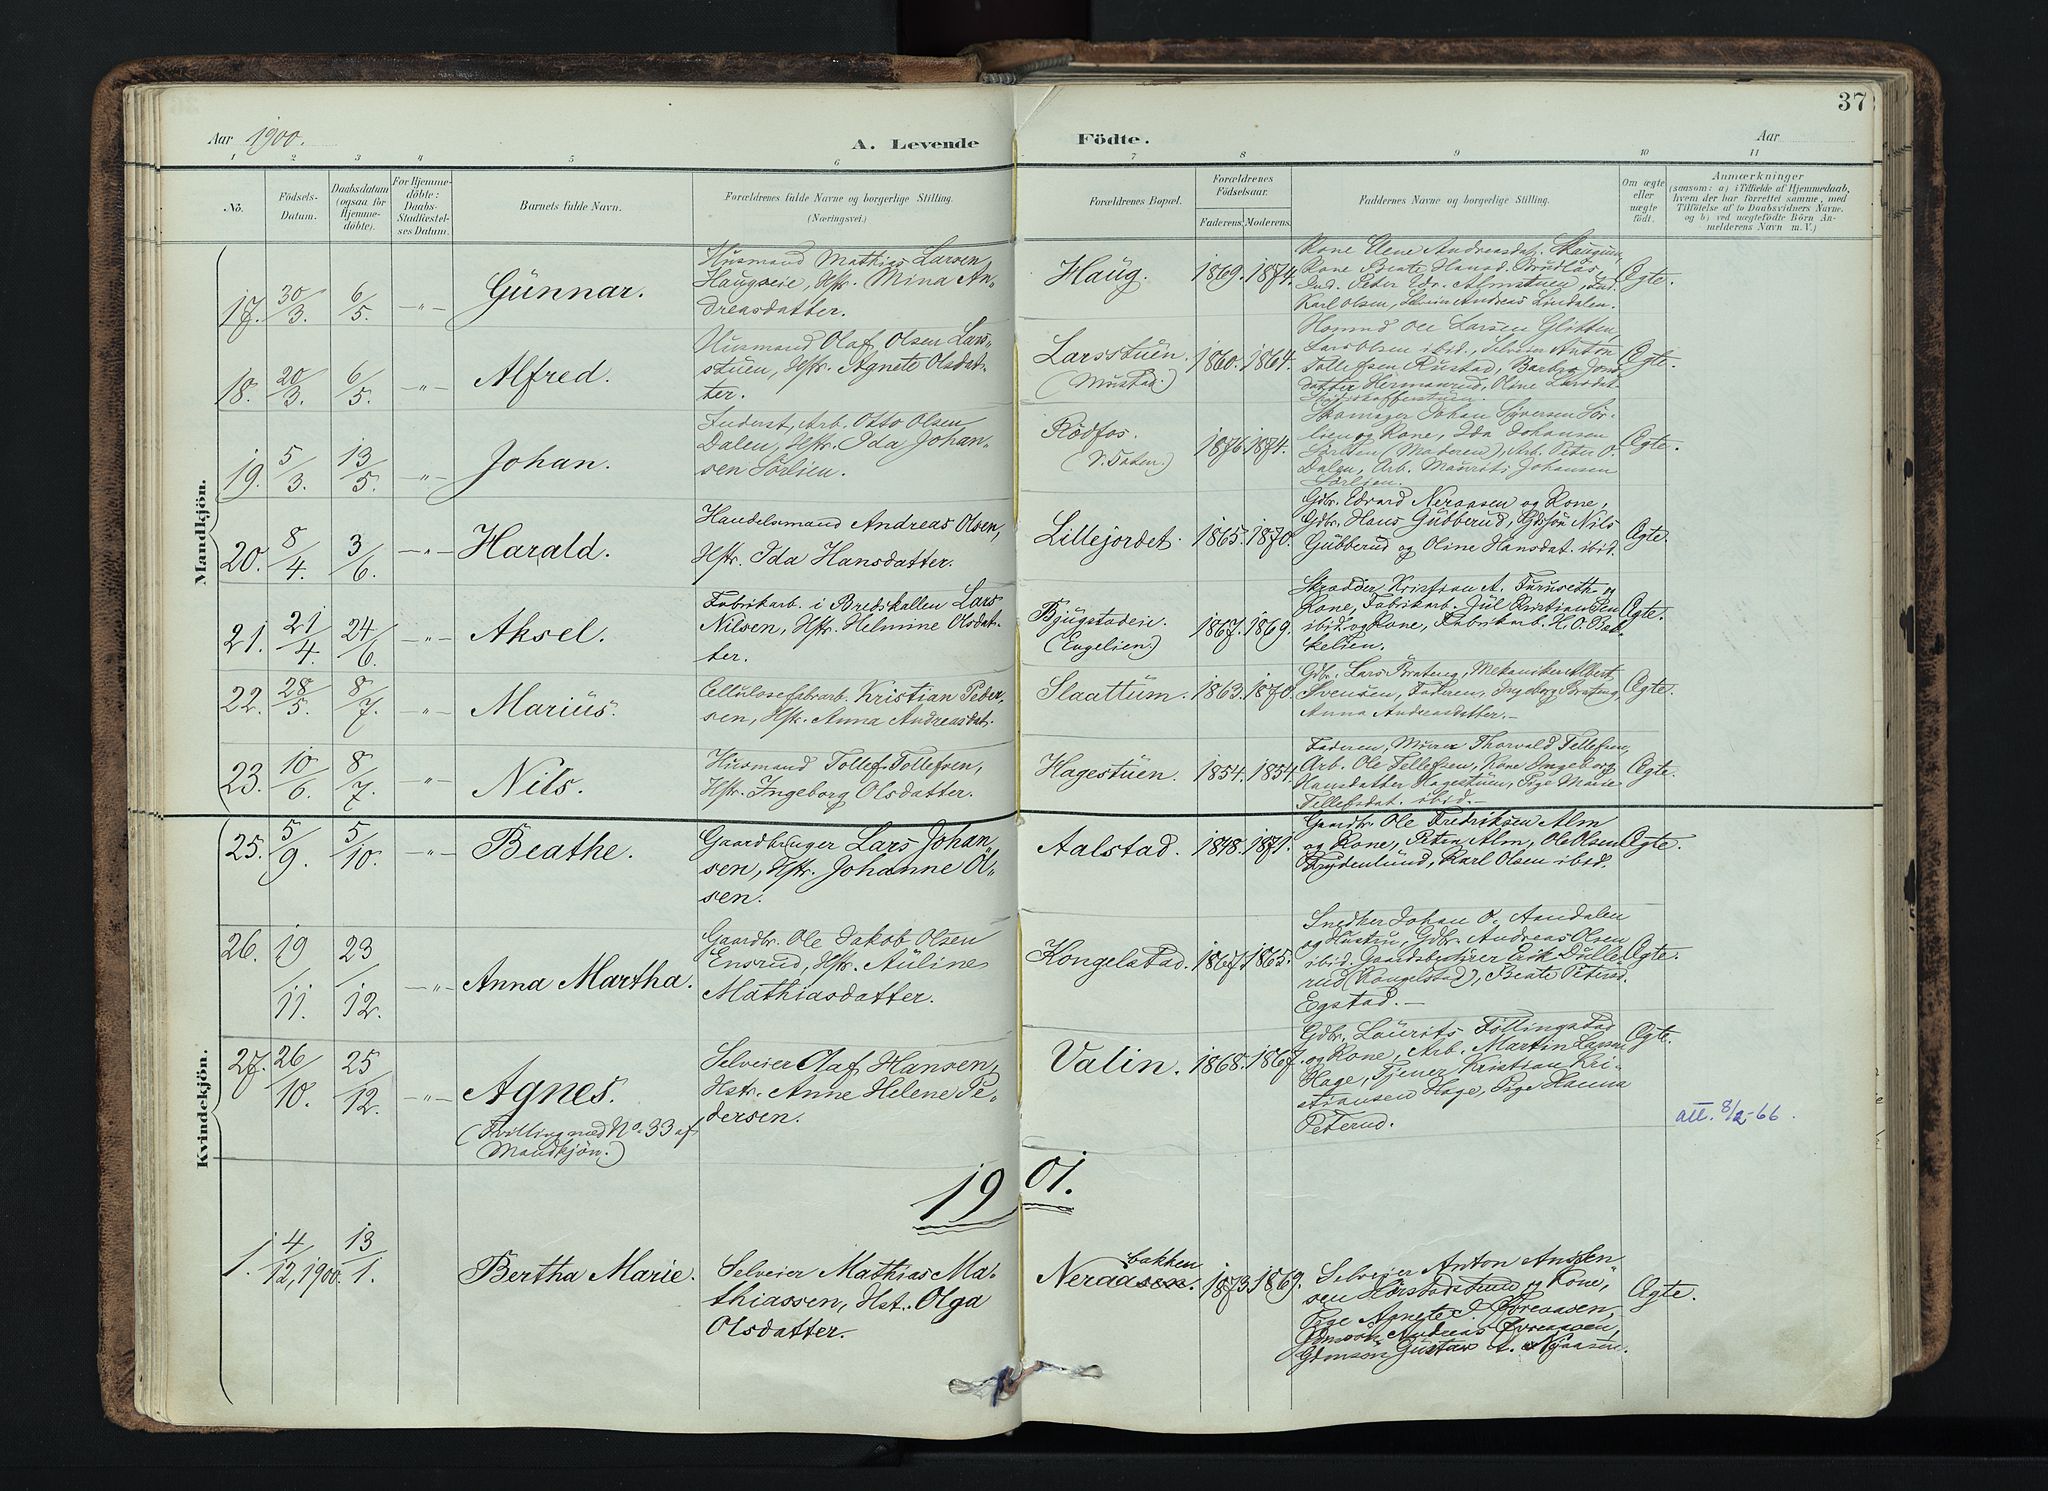 37
Aar 1900.
A. Levende
Födte.
Aar
1 2 3 4 5 6 7 8 9 10 11
No.
Födsels-
Datum.
Daabsdatum
(ogsaa for
Hjemme-
döbte).
For Hjemme-
döbte:
Daabs-
Stadfæstel-
ses Datum.
Barnets fulde Navn.
Forældrenes fulde Navne og borgerlige Stilling.
(Næringsvei.)
Forældrenes Bopæl.
Forældrenes
Födselsaar.
Faderens. Moderens.
Faddernes Navne og borgerlige Stilling.
Om ægte
eller
uægte
födt.
Anmærkninger
(saasom: a) i Tilfælde af Hjemmedaab,
hvem der har forrettet samme, med
Tilföielse af to Daabsvidners Navne.
og b) ved uægtefödte Börn An-
melderens Navn m. V.)
Mandkjön.
17. 30/3. 6/5. —„— Gunnar.
Husmand Mathias Larsen
Haugseie, Hstr. Mina An-
dreasdatter.
Haug. 1869. 1874.
Kone Elene Andreasdat.
Kone Beate Hansd.
Ind. Peter Edv. Almstuen, Ind.
Karl Olsen, Selveier Andreas Lindalen.
Ægte.
18. 20/3. 6/5. —„— Alfred.
Husmand Olaf Olsen Lars-
stuen, Hstr. Agnete Olsdat-
ter.
Larsstuen.
(Mustad.)
1860. 1864.
Ole Larsen Glötten,
Lars Olsen ibid., Selveier Anton
Tollefsen Rustad, Barbro Jons-
datter Hermanrud, Oline Larsdat.
Ægte.
19. 5/3. 13/5. —„— Johan.
Inderst, Arb. Otto Olsen
Dalen, Hstr. Ida Johan-
sen Sörlien.
Rödfos.
(V. Toten.)
1876. 1874.
Skomager Johan Syversen Sör-
lien og Kone, Ida Johansen
Sörlien (Moderen), Arb. Peter O.
Dalen, Arb. Mauritz Johansen
Sörlien.
Ægte.
20. 8/4. 3/6. —„— Harald.
Handelsmand Andreas Olsen,
Hstr. Ida Hansdatter.
Lillejordet. 1865. 1870.
Gdbr. Edvard Neraasen og Kone,
Gdbr. Hans Gubberud, Gdsøn Nils
Gubberud og Oline Hansdat. ibid.
Ægte.
21. 21/4. 24/6. —„— Aksel.
Fabrikarb. i Bredskallen Lars
Nilsen, Hstr. Helmine Olsdat-
ter.
Bjugstadeie.
(Engelien)
1867. 1869.
Skrædder Kristian A. Furuseth og
Kone, Fabrikarb. Jul Kristiansen
ibid. og Kone, Fabrikarb. H. O. Bak-
kelien.
Ægte.
22. 28/5. 8/7. —„— Marius.
Cellulosefabarb. Kristian Peder-
sen, Hstr. Anna Andreasdat.
Slaattum. 1863. 1870.
Gdbr. Lars Brateng, Mekaniker Albert
Svensen, Faderen, Ingeborg Brateng,
Anna Andreasdatter.—
Ægte.
23. 10/6. 8/7. —„— Nils.
Husmand Tollef Tollefsen,
Hstr. Ingeborg Olsdatter.
Hagestuen. 1854. 1854.
Faderen, Murer Thorvald Tollefsen,
Arb. Ole Tollefsen, Kone Ingeborg
Hansdatter Hagestuen, Pige Marie
Tollefsdat. ibid.—
Ægte.
Kvindekjön.
25. 5/9. 5/10. —„— Beathe.
Gaardbruger Lars Johan-
sen, Hstr. Johanne Ol-
sen.
Aalstad. 1848. 1871.
Gaardbr. Ole Fredriksen Alm
og Kone, Peter Alm, Ole Olsen
Frydenlund, Karl Olsen ibid.
Ægte.
26. 19/11. 23/12. —„— Anna Martha.
Gaardbr. Ole Jakob Olsen
Ensrud, Hstr. Auline
Mathiasdatter.
Kongelstad. 1867. 1865.
Snedker Johan O. Aandalen
og Hustru, Gdbr. Andreas Olsen
ibid. Gaardbestyrer Erik Dulle-
rud (Kongelstad), Beate Petersd.
Egstad.—
Ægte.
27. 26/10. 25/12. —„— Agnes.
(Tvilling med No. 33 af
Mandkjön.)
Selveier Olaf Hansen,
Hstr. Anne Helene Pe-
dersen.
Valin. 1868. 1867.
Gdbr. Laurits Föllingstad
og Kone, Arb. Martin Larsen
Hage, Tjener Kristian Kri-
stiansen Hage, Pige Hanna
Peterud.
Ægte.
att. 8/2-66.
1901.
1. 4/12, 1900. 13/1. Bertha Marie.
Selveier Mathias Ma-
thiassen, Hst. Olga
Olsdatter.
bakken
Neraasen. 1873. 1869.
Selveier Anton
sen og Kone,
Pige Agnete J. Øvreaasen,
Andreas Øvreaasen,
Gdmsøn Gustav A. Nyaasen.
Ægte.